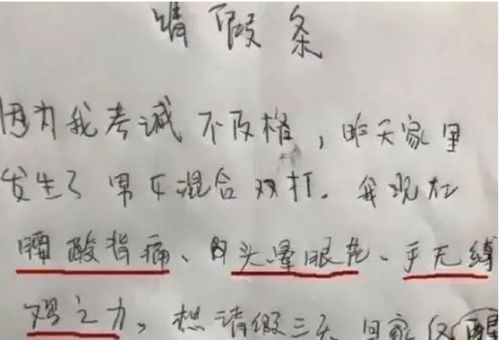 请假条
因为我考试不及格，昨天家里
发生了男女混合双打。我现在
腰酸背痛、头晕眼花、手无缚
鸡之力，想请假三天 回家仅